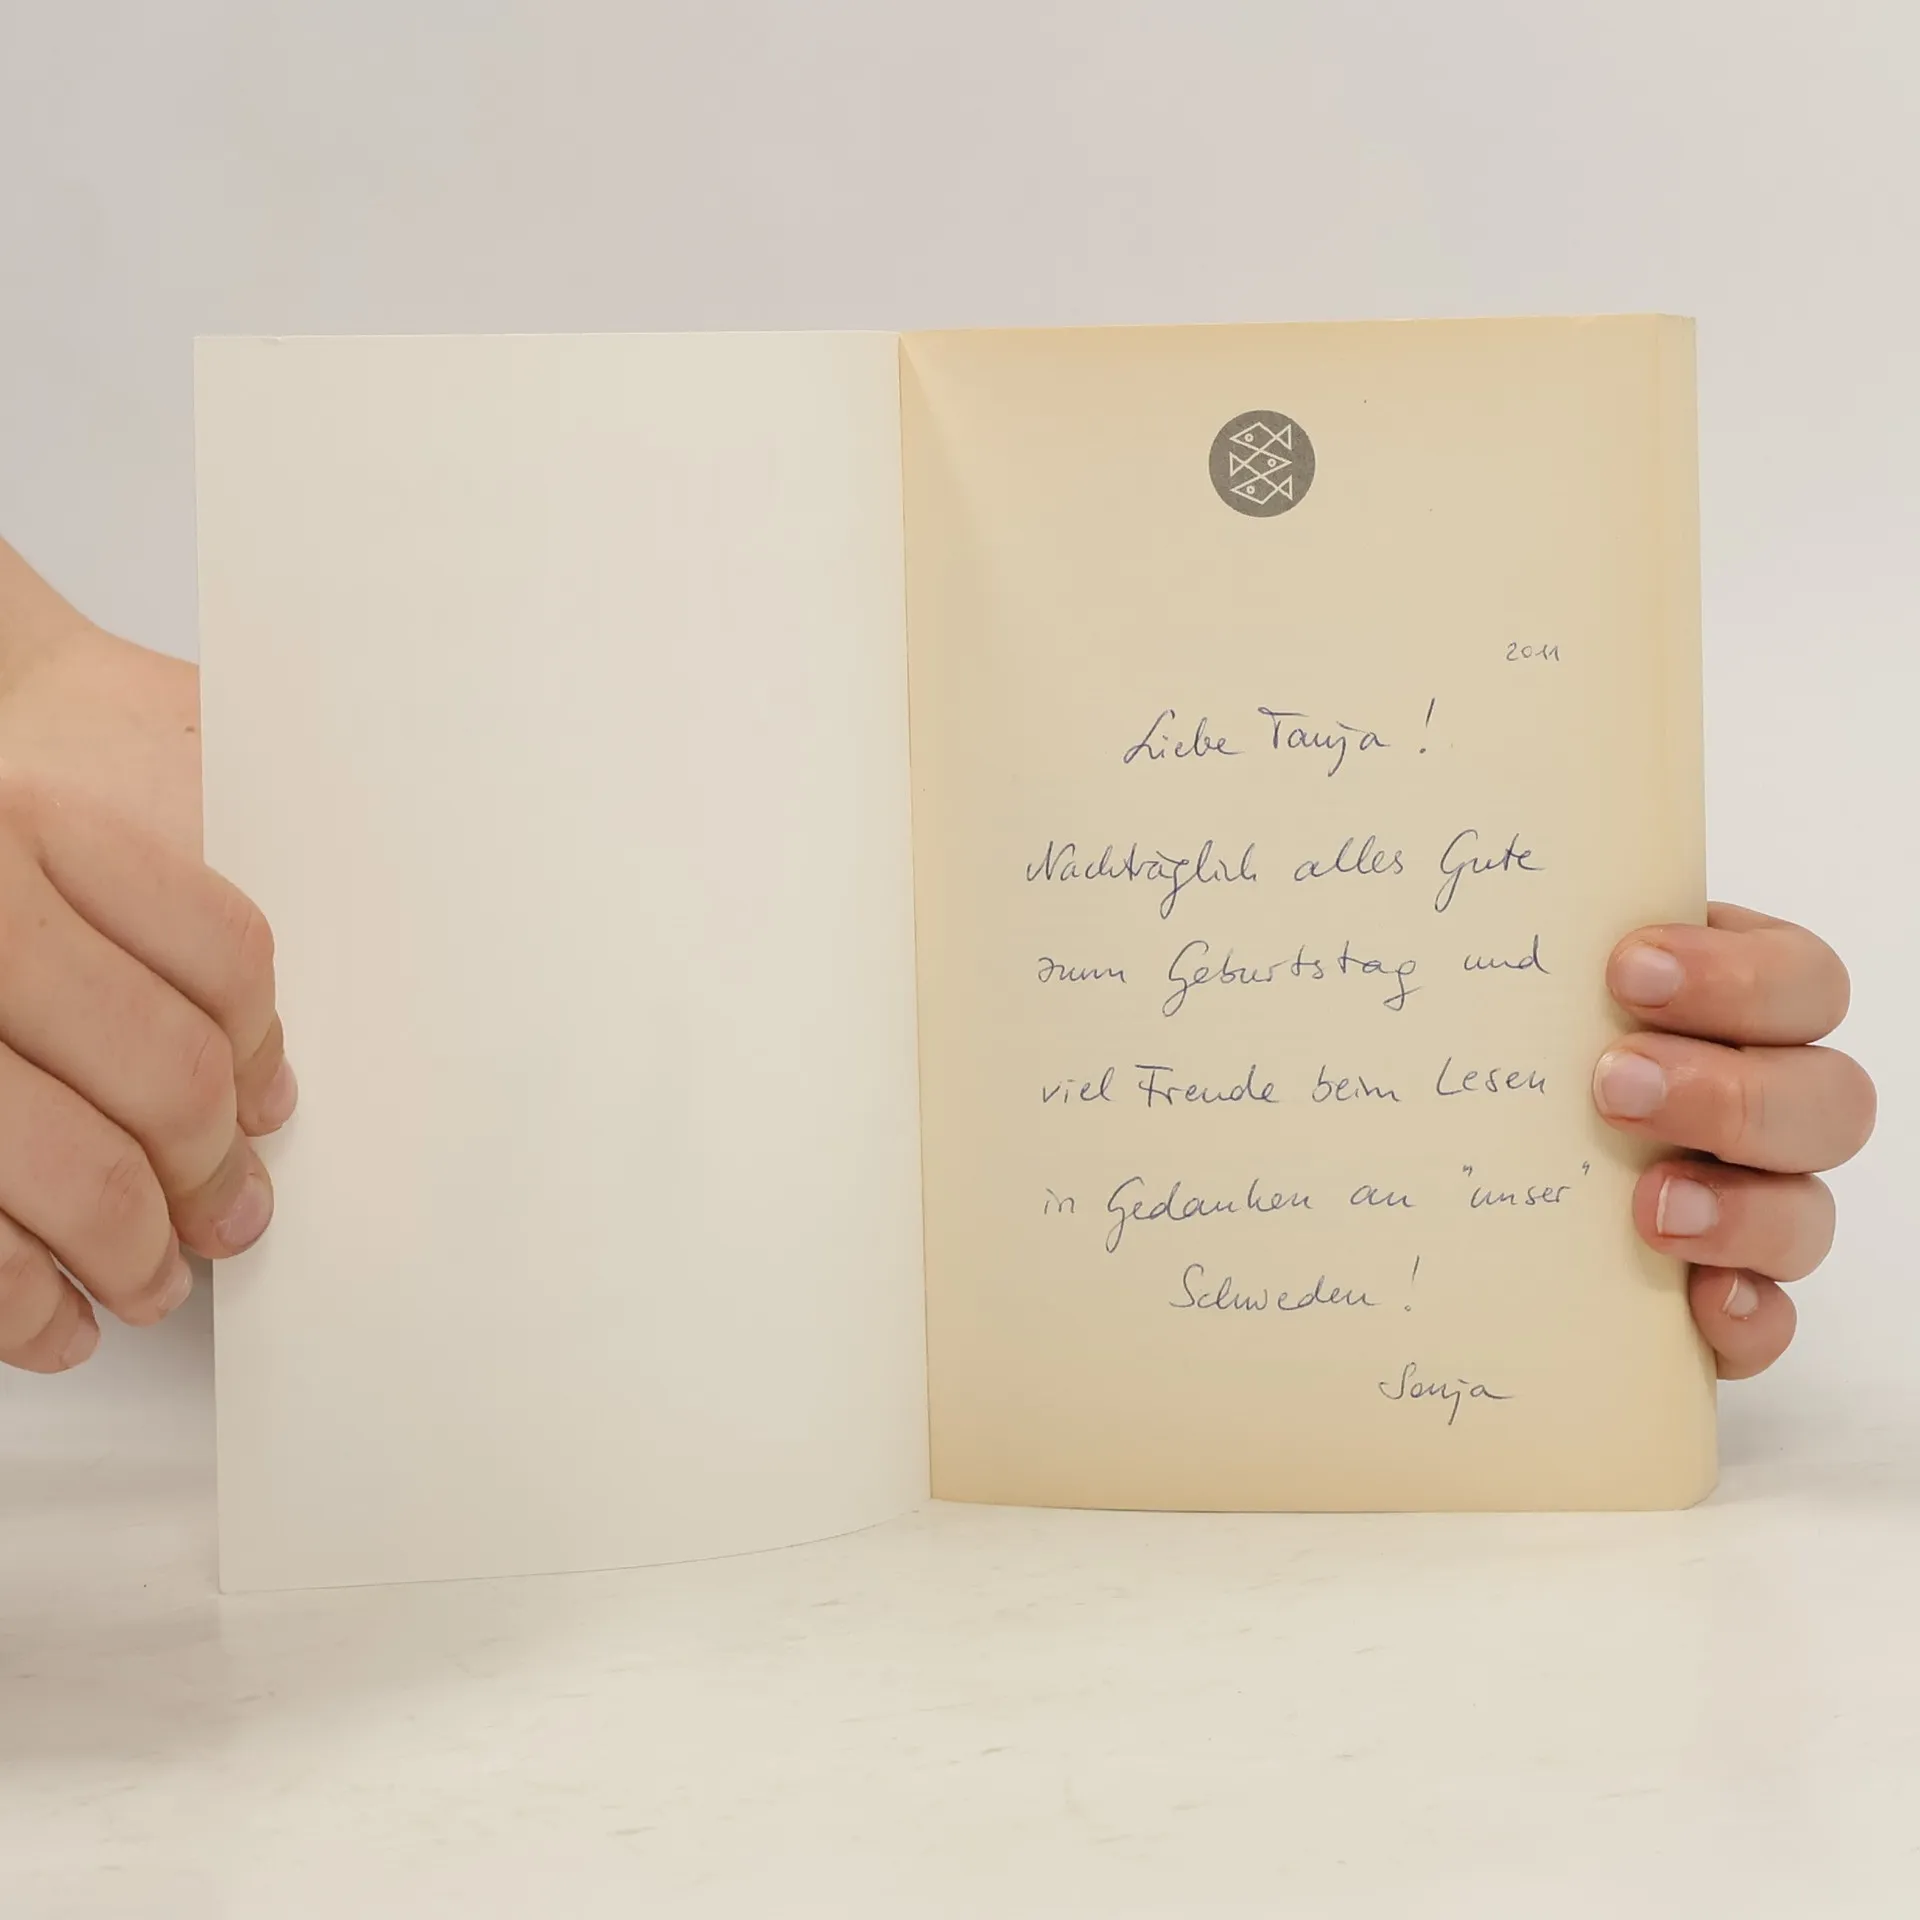 2011
Liebe Tanja !
Nachträglich alles Gute
zum Geburtstag und
viel Freude beim Lesen
in Gedanken an "unser"
Schweden !
Sonja